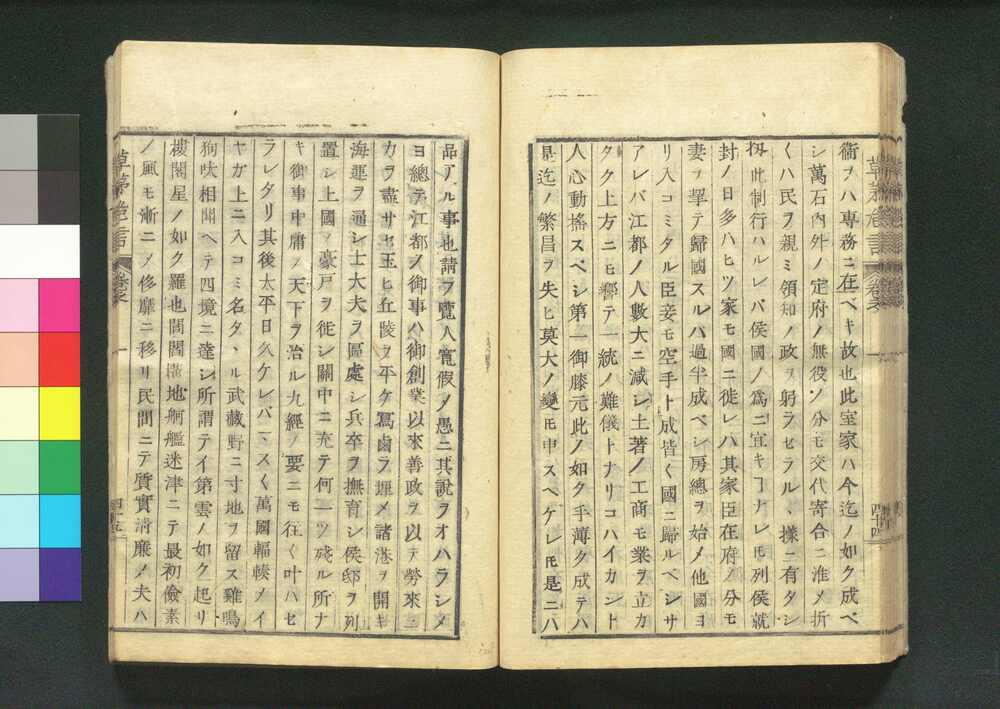 衛ヲハ專務ニ在ベキ故也此室家ハ今迄ノ如ク成ベ
シ萬石内外ノ定府ノ無役ノ分モ交代寄合ニ准メ折
くハ民ヲ親ミ領知ノ政ヲ躬ラセラルヽ樣ニ有タシ
扨此制行ハルレバ侯國ノ爲ニ宜キヿナレ𪜈列侯就
封ノ日多ハヒツ家モ國ニ徙レハ其家臣在府ノ分モ
妻ヲ挈テ歸國スルハ過半成ベシ房總ヲ始メ他國ヨ
リ入コミタル臣妾モ空手ト成皆く國ニ歸ルベシサ
アレバ江都ノ人數大ニ減シ土著ノ工商モ業ヲ立カ
タク上方ニモ響テ一統ノ難儀トナリコハイカント
人心動搖スベシ第一御膝元此ノ如ク手薄ク成テハ
是迄ノ繁昌ヲ失ヒ莫大ノ變𪜈申スベケレ𪜈是ニハ
草茅危言
卷之
四十四
品アル事也請フ覽人寬假メ愚ニ其說ヲオハラシメ
ヨ總テ江都ノ御事ハ御創業以來善政ヲ以テ勞來ニ
力ヲ盡サセ玉ヒ丘陵ヲ平ケ寫鹵ヲ埋メ諸港ヲ開キ
海運ヲ通シ士大夫ヲ區處シ兵卒ヲ撫育シ侯邸ヲ列
置シ上國ノ豪戸ヲ徙シ關中ニ充テ何一ツ殘ル所ナ
キ御事中庸ノ天下ヲ治ル九經ノ要ニモ往く叶ハセ
ラレタリ其後太平日久ケレバマスく萬國輻輳メイ
ヤガ上ニ入コミ名タヽル武藏野ニ寸地ヲ留ス雞鳴
狗吠相聞ヘテ四境ニ達シ所謂テイ第雲ノ如ク起リ
樓閣星ノ如ク羅也閭閻撲地舸艦迷津ニテ最初儉素
ノ風モ漸ニメ修靡ニ移リ民間ニテ質實淸廉メ夫ハ
草茅危言
卷之
一
四十五